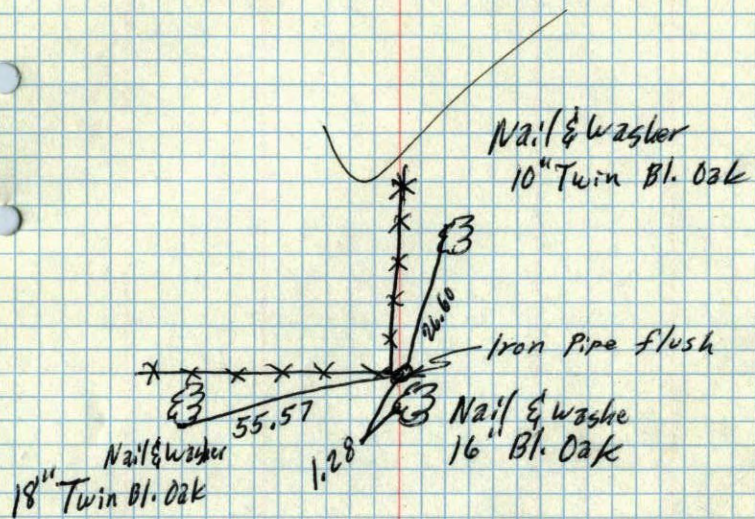 Nail & Washer
10" Twin Bl. Oak
26.60
Iron Pipe flush
55.57
Nail & washe
16" Bl. Oak
1.28
Nail & Washer
18" Twin Bl. Oak